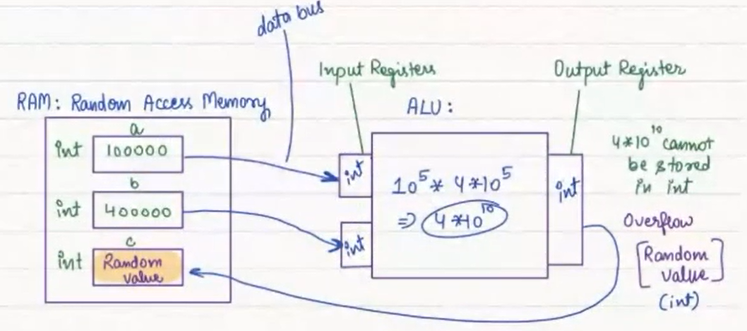 data bus
Input Registers
Output Register
RAM: Random Access Memory
ALU:
a
int 100000
b
int 400000
c
int Random
value
int
int
10^5 * 4*10^5
=> 4*10^10
int
4*10^10 cannot
be stored
in int
Overflow
[Random
value]
(int)